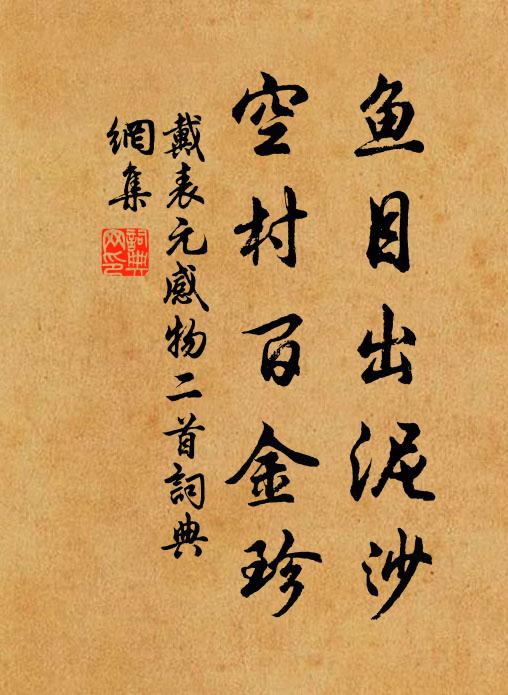 鱼目出泥沙
空村百金珍
戴表元感物二首詞典
網集
詞典
网印